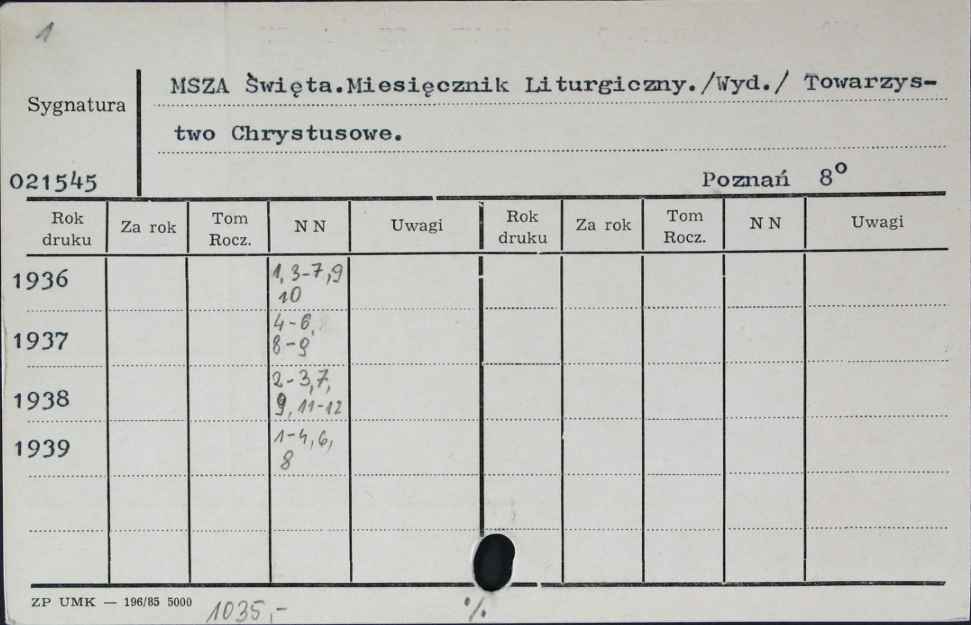 1
MSZA Święta.Miesięcznik Liturgiczny./Wyd./ Towarzys-
Sygnatura
two Chrystusowe.
021545 Poznań 8°
Rok druku Za rok Tom Rocz. N N Uwagi Rok druku Za rok Tom Rocz. N N Uwagi
1936 1, 3-7, 9
10
1937 4-6,
8-9
1938 2-3, 7,
9, 11-12
1939 1-4, 6,
8
ZP UMK — 196/85 5000 1035,- %